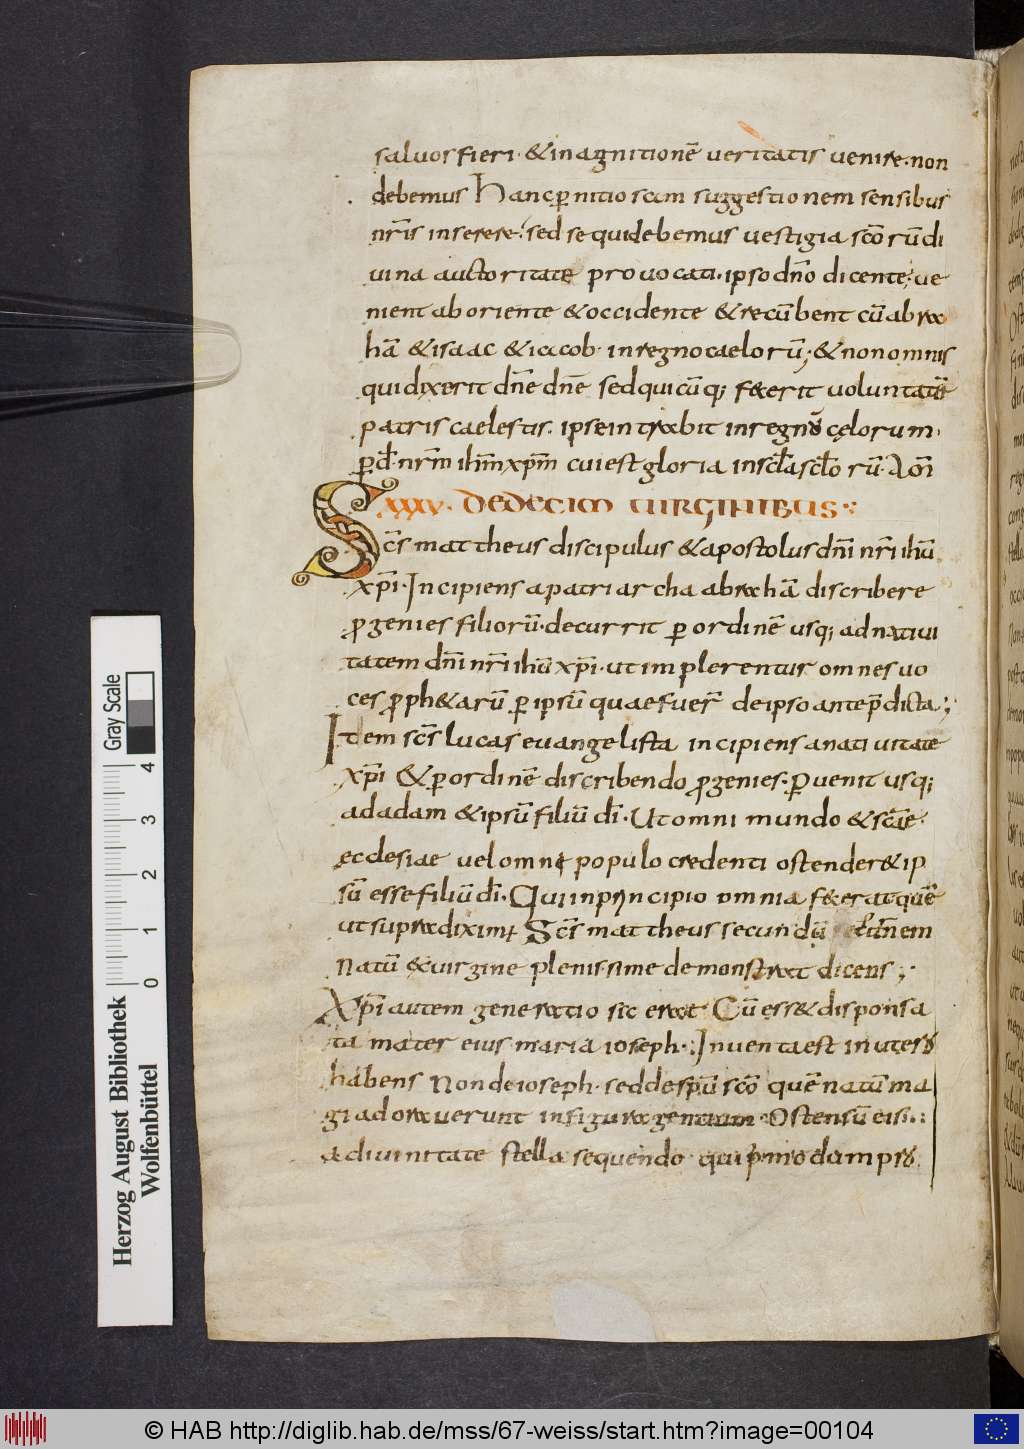 saluos fieri · & in agnitionē ueritatis uenire · non
debemus Hanc p̱nitiosam suggestionem sensibus
nr̄is inserere · sed sequi debemus uestigia scōrū di
uina auctoritate prouocati · ipso dn̄o dicente; ue
nient ab oriente & occidente & recūbent cū abra
hā & isaac & iacob · in regno caelorū; & non omnis
qui dixerit dn̄e dn̄e sed quicūq; fecerit uoluntatē
patris caelestis · ipse intrabit in regnū cęlorum ·
p̱ d̄ · nr̄m ihm̄ xpm̄ cui est gloria in scl̄a scl̄orū · Am̄
XXXV · DE DECEM UIRGINIBUS :·
Scs̄ mattheus discipulus & apostolus dn̄i nr̄i ihū
xp̄i · Incipiens a patriarcha abrahā discribere
ꝓgenies filiorū · decurrit p̱ ordinē usq; ad natiui
tatem dn̄i nr̄i ihū xp̄i · ut implerentur omnes uo
ces ꝓph&arū p̱ ipsū quae fuer̄ de ipso ante p̄dicta;
Item scs̄ lucas euangelista incipiens a natiuitate
xp̄i & p̱ ordinē discribendo ꝓgenies · p̱uenit usq;
ad adam & ipsū filiū dī · Ut omni mundo & scāe
ecclesiae uel omni populo credenti ostender& ip
sū esse filiū dī · Qui in principio omnia fecerat quē
ut supra diximus Scs̄ mattheus secundū
natū ex uirgine plenissime demonstrat dicens ;
Xp̄i autem generatio sic erat Cū ess& disponsa
ta mater eius maria ioseph · Inuenta est in utero
habens Non de ioseph · sed de spū scō quē natū ma
gi adorauerunt in figura gentium · Ostensū eis ·:
a diuinitate stella sequendo · qui primo dum pro
Herzog August Bibliothek
Wolfenbüttel
0 1 2 3 4
Gray Scale
© HAB http://diglib.hab.de/mss/67-weiss/start.htm?image=00104